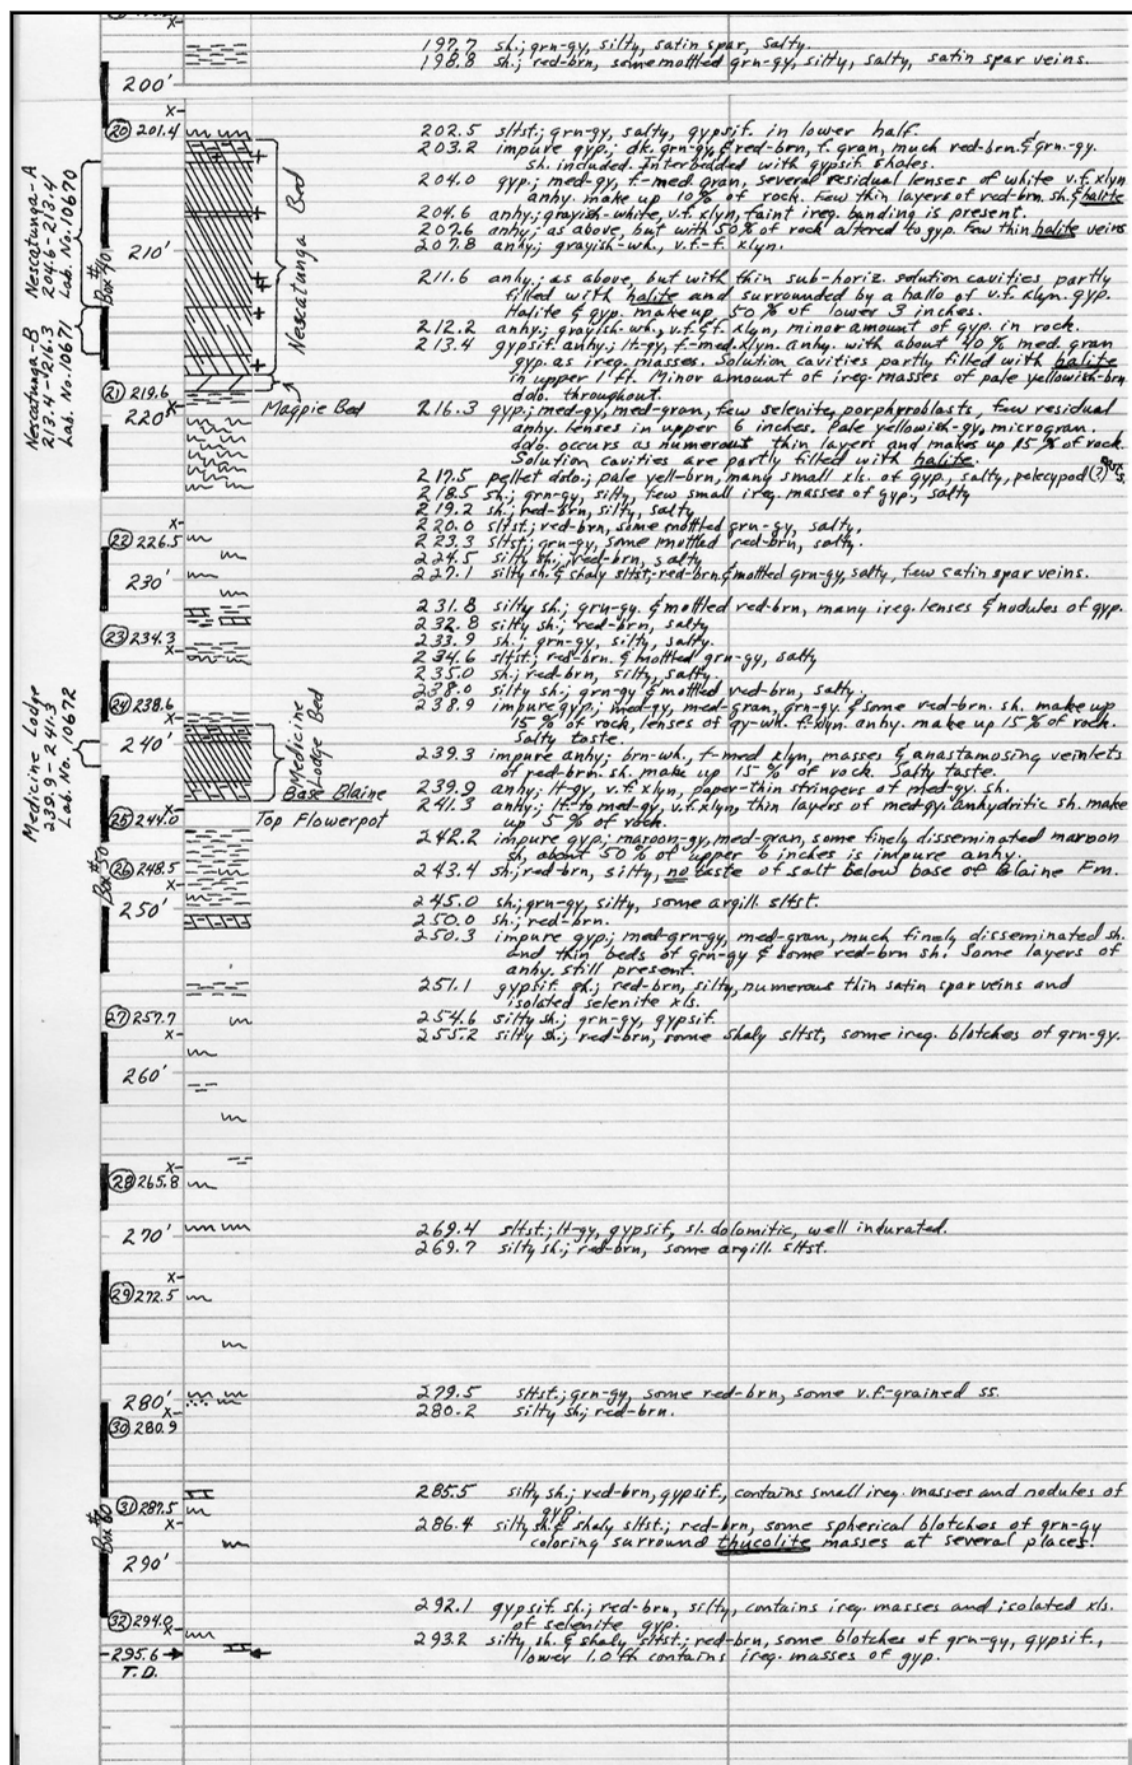 197.7 sh.; grn-gy, silty, satin spar, salty.
198.8 sh.; red-brn, some mottled grn-gy, silty, salty, satin spar veins.
200'
20 201.4
202.5 sltst.; grn-gy, salty, gypsif. in lower half.
203.2 impure gyp.; dk. grn-gy, & red-brn, f. gran, much red-brn. & grn.-gy.
sh. included. Interbedded with gypsif. shales.
204.0 gyp.; med-gy, f.-med. gran, several residual lenses of white v.f. xlyn
anhy. make up 10% of rock. Few thin layers of red-brn. sh. & halite
204.6 anhy.; grayish-white, v.f. xlyn, faint ireg. banding is present.
207.6 anhy.; as above, but with 50% of rock altered to gyp. Few thin halite veins
207.8 anhy.; grayish-wh., v.f.-f. xlyn.
Nescatunga-A
204.6-213.4
Lab. No. 10670
Box #40
210'
Nescatunga Bed
211.6 anhy.; as above, but with thin sub-horiz. solution cavities partly
filled with halite and surrounded by a hallo of v.f. xlyn. gyp.
Halite & gyp. make up 50% of lower 3 inches.
212.2 anhy.; grayish-wh., v.f. & f. xlyn, minor amount of gyp. in rock.
213.4 gypsif. anhy.; lt-gy, f-med. xlyn. anhy. with about 40% med. gran
gyp. as ireg. masses. Solution cavities partly filled with halite
in upper 1 ft. Minor amount of ireg. masses of pale yellowish-brn
dolo. throughout.
Nescatunga-B
213.4-216.3
Lab. No. 10671
21 219.6
220'
Magpie Bed
216.3 gyp.; med-gy, med-gran, few selenite, porphyroblasts, few residual
anhy. lenses in upper 6 inches. Pale yellowish-gy, microgran.
dolo. occurs as numerous thin layers and makes up 15% of rock.
Solution cavities are partly filled with halite.
217.5 pellet dolo.; pale yell-brn, many small xls. of gyp., salty, pelecypod(?)
218.5 sh.; grn-gy, silty, few small ireg. masses of gyp., salty
219.2 sh.; red-brn, silty, salty
220.0 sltst.; red-brn, some mottled grn-gy, salty.
223.3 sltst; grn-gy, some mottled red-brn, salty.
224.5 silty sh.; red-brn, salty
227.1 silty sh. & shaly sltst; red-brn. & mottled grn-gy, salty, few satin spar veins.
22 226.5
230'
231.8 silty sh.; grn-gy. & mottled red-brn, many ireg. lenses & nodules of gyp.
232.8 silty sh.; red-brn, salty
233.9 sh.; grn-gy, silty, salty.
23 234.3
234.6 sltst.; red-brn. & mottled grn-gy, salty
235.0 sh.; red-brn, silty, salty.
238.0 silty sh.; grn-gy & mottled red-brn, salty.
24 238.6
238.9 impure gyp.; med-gy, med-gran, grn-gy. & some red-brn. sh. make up
15% of rock, lenses of gy-wh. f. xlyn. anhy. make up 15% of rock.
Salty taste.
Medicine Lodge
239.9-241.3
Lab. No. 10672
240'
Medicine Lodge Bed
239.3 impure anhy; brn-wh., f-med xlyn, masses & anastamosing veinlets
of red-brn. sh. make up 15% of rock. Salty taste.
239.9 anhy; lt-gy, v.f. xlyn, paper-thin stringers of med-gy. sh.
Base Blaine
241.3 anhy.; lt.-to med-gy, v.f. xlyn, thin layers of med-gy. anhydritic sh. make
up 5% of rock.
25 244.0
Top Flowerpot
242.2 impure gyp.; maroon-gy, med-gran, some finely disseminated maroon
sh, about 50% of upper 6 inches is impure anhy.
Box #50
26 248.5
243.4 sh.; red-brn, silty, no taste of salt below base of Blaine Fm.
245.0 sh.; grn-gy, silty, some argill. sltst.
250'
250.0 sh.; red-brn.
250.3 impure gyp.; med-grn-gy, med-gran, much finely disseminated sh.
and thin beds of grn-gy & some red-brn sh. Some layers of
anhy. still present.
251.1 gypsif. sh.; red-brn, silty, numerous thin satin spar veins and
isolated selenite xls.
27 257.7
254.6 silty sh.; grn-gy, gypsif.
255.2 silty sh.; red-brn, some shaly sltst, some ireg. blotches of grn-gy.
260'
28 265.8
270'
269.4 sltst.; lt-gy, gypsif, sl. dolomitic, well indurated.
269.7 silty sh.; red-brn, some argill. sltst.
29 272.5
280'
279.5 sltst.; grn-gy, some red-brn, some v.f.-grained ss.
280.2 silty sh.; red-brn.
30 280.9
285.5 silty sh.; red-brn, gypsif., contains small ireg. masses and nodules of
gyp.
Box #60
31 287.5
286.4 silty sh. & shaly sltst.; red-brn, some spherical blotches of grn-gy
coloring surround thucolite masses at several places.
290'
292.1 gypsif. sh.; red-brn, silty, contains ireg. masses and isolated xls.
of selenite gyp.
32 294.0
293.2 silty, sh. & shaly sltst.; red-brn, some blotches of grn-gy, gypsif.,
lower 1.0 ft. contains ireg. masses of gyp.
295.6
T.D.